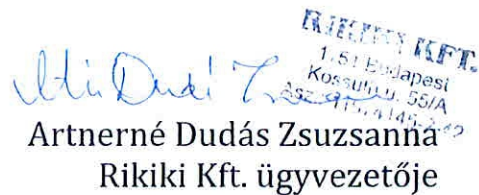 RIKIKI KFT.
Budapest
Kossuth u. 55/A
Artnerné Dudás Zsuzsanna
Rikiki Kft. ügyvezetője